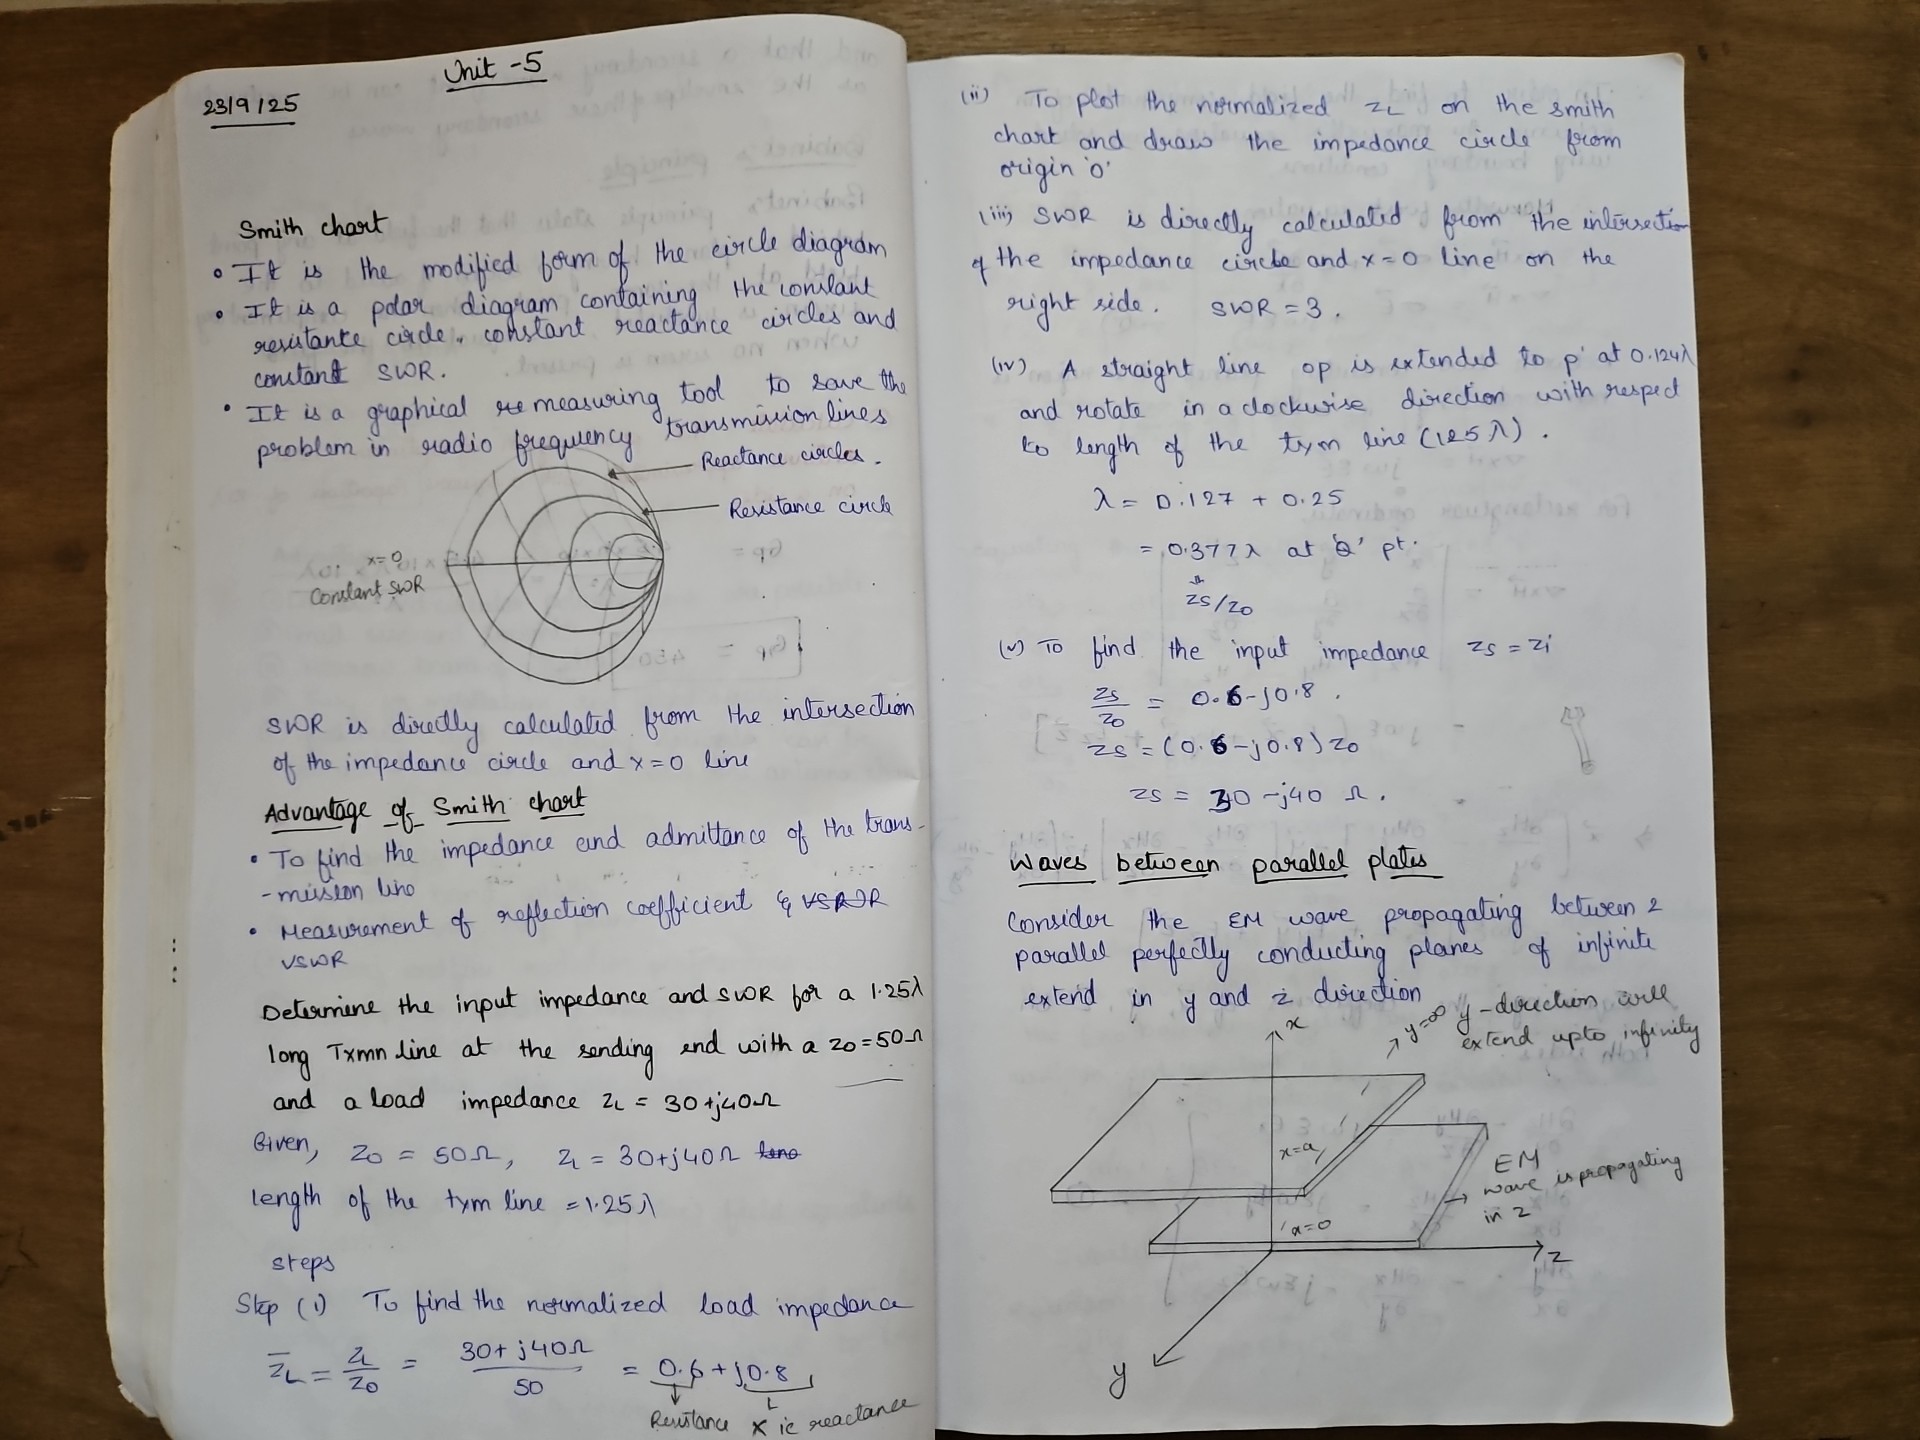 Unit - 5
23/9/25
Smith chart
• It is the modified form of the circle diagram
• It is a polar diagram containing the constant
resistante circle, constant reactance circles and
constant SWR.
• It is a graphical re measuring tool to save the
problem in radio frequency transmission lines
Reactance circles.
Resistance circle
x=0
Constant SWR
SWR is directly calculated from the intersection
of the impedance circle and x=0 line
Advantage of Smith chart
• To find the impedance and admittance of the trans-
-mission line
• Measurement of reflection coefficient &
VSWR
Determine the input impedance and SWR for a 1.25λ
long Txmn line at the sending end with a Z0=50Ω
and a load impedance ZL = 30+j40Ω
Given, Z0 = 50Ω, ZL = 30+j40Ω
length of the txm line = 1.25λ
steps
Step (i) To find the normalized load impedance
Z̄L = ZL/Z0 = 30+j40Ω/50 = 0.6+j0.8
Resistance X ie reactance
(ii) To plot the normalized ZL on the smith
chart and draw the impedance circle from
origin 'o'
(iii) SWR is directly calculated from the intersection
of the impedance circle and x=0 line on the
right side. SWR = 3.
(iv) A straight line op is extended to p' at 0.124λ
and rotate in a clockwise direction with respect
to length of the txm line (125λ).
λ = 0.127 + 0.25
= 0.377λ at 'Q' pt.
Zs/Z0
(v) To find the input impedance Zs = Zi
Zs/Z0 = 0.6-j0.8.
Zs = (0.6-j0.8) Z0
Zs = 30-j40 Ω.
Waves between parallel plates
Consider the EM wave propagating between 2
parallel perfectly conducting planes of infinite
extend in y and z direction
x
y=∞ y-direction will
extend upto infinity
x=a
EM
wave is propagating
in z
x=0
z
y